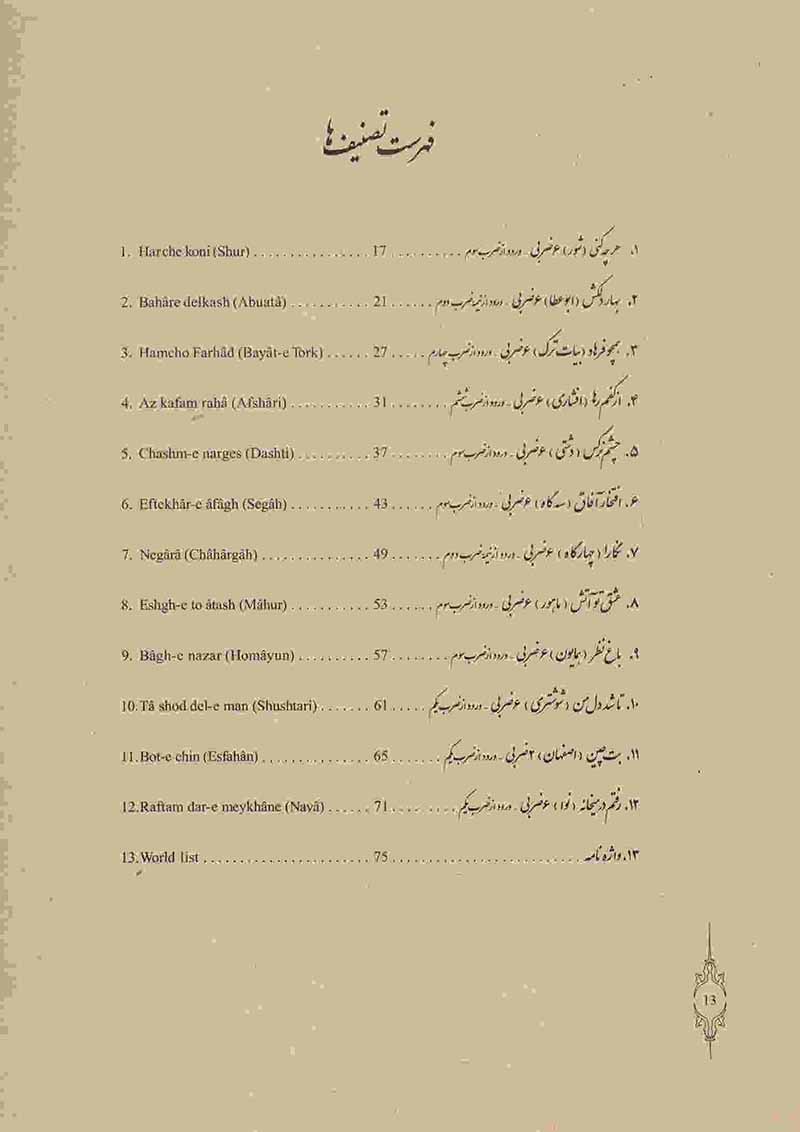 فهرست تصنیف‌ها
1. Harche koni (Shur) ................ 17 .......... ۱. هرچه کنی (شور) ۶ ضربی - ورود از ضرب سوم
2. Bahâre delkash (Abuatâ) ........... 21 ...... ۲. بهار دلکش (ابوعطا) ۶ ضربی - ورود از نیمه ضرب دوم
3. Hamcho Farhâd (Bayât-e Tork) ...... 27 ..... ۳. همچو فرهاد (بیات ترک) ۶ ضربی - ورود از ضرب چهارم
4. Az kafam rahâ (Afshâri) ........... 31 ........ ۴. از کفم رها (افشاری) ۶ ضربی - ورود از ضرب ششم
5. Chashm-e narges (Dashti) .......... 37 ........ ۵. چشم نرگس (دشتی) ۶ ضربی - ورود از ضرب سوم
6. Eftekhâr-e âfâgh (Segâh) ........... 43 ...... ۶. افتخار آفاق (سه‌گاه) ۶ ضربی - ورود از ضرب سوم
7. Negârâ (Châhârgâh) ............... 49 ....... ۷. نگارا (چهارگاه) ۶ ضربی - ورود از نیمه ضرب دوم
8. Eshgh-e to âtash (Mâhur) ........... 53 ...... ۸. عشق تو آتش (ماهور) ۶ ضربی - ورود از ضرب سوم
9. Bâgh-e nazar (Homâyun) .......... 57 ........ ۹. باغ نظر (همایون) ۶ ضربی - ورود از ضرب سوم
10. Tâ shod del-e man (Shushtari) ....... 61 ..... ۱۰. تا شد دل من (شوشتری) ۶ ضربی - ورود از ضرب یکم
11. Bot-e chin (Esfahân) ............... 65 ....... ۱۱. بت چین (اصفهان) ۲ ضربی - ورود از ضرب یکم
12. Raftam dar-e meykhâne (Navâ) ...... 71 ......... ۱۲. رفتم در میخانه (نوا) ۶ ضربی - ورود از ضرب یکم
13. World list ....................... 75 .......................... ۱۳. واژه نامه
13